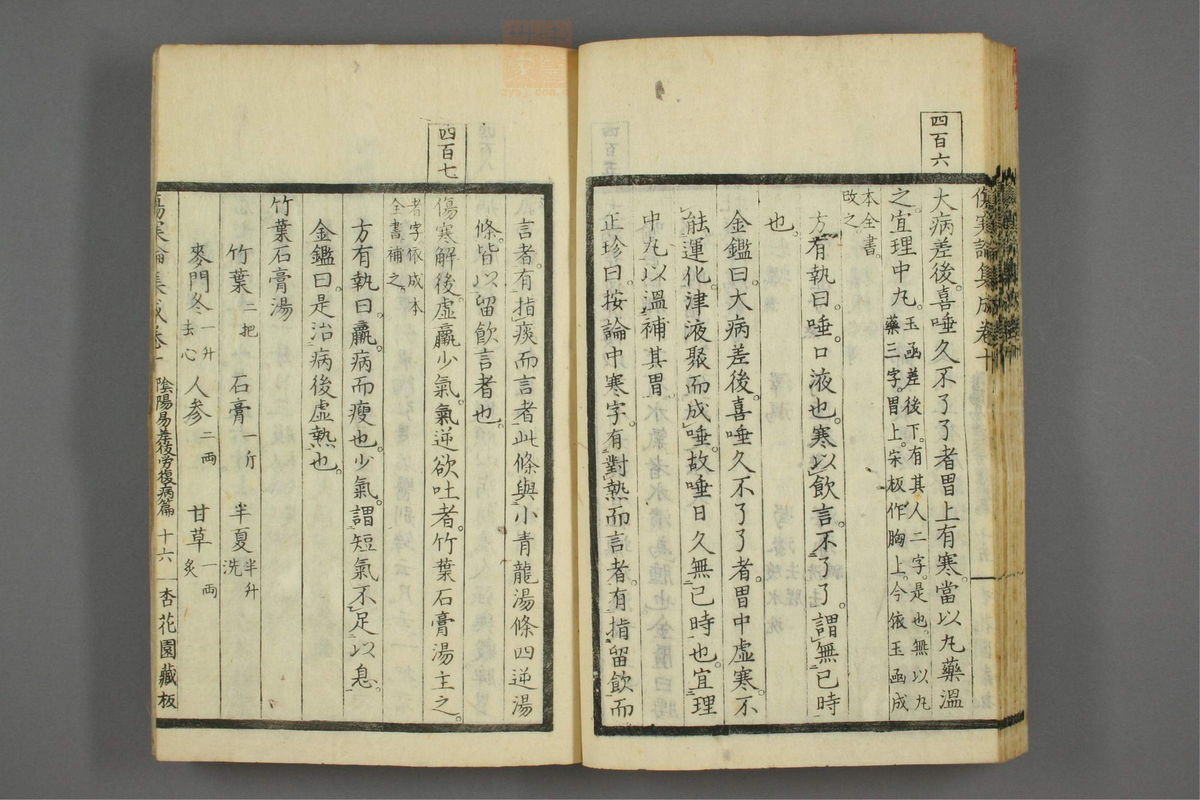 傷寒論集成卷十
四百六
大病差後。喜唾久不了了者。胃上有寒。當以丸藥溫
之。宜理中丸。玉函差後下。有其人二字。是也。無以丸
藥三字。胃上。宋板作胸上。今依玉函成
本全書。
改之
方有執曰。唾。口液也。寒以飲言。不了了。謂無已時
也。
金鑑曰。大病差後。喜唾久不了了者。胃中虛寒。不
能運化津液。聚而成唾。故唾日久無已時也。宜理
中丸以溫補其胃。
正珍曰。按論中寒字。有對熱而言者。有指留飲而
言者。有指痰而言者。此條與小青龍湯條四逆湯
條。皆以留飲言者也。
四百七
傷寒解後。虛羸少氣。氣逆欲吐者。竹葉石膏湯主之。
者字依成本
全書補之。
方有執曰。羸。病而瘦也。少氣。謂短氣不足以息。
金鑑曰。是治病後虛熱也。
竹葉石膏湯
竹葉二把 石膏一斤 半夏半升洗
麥門冬一升去心 人參二兩 甘草一兩炙
傷寒論集成卷十 陰陽易差後勞復病篇 十六 杏花園藏板